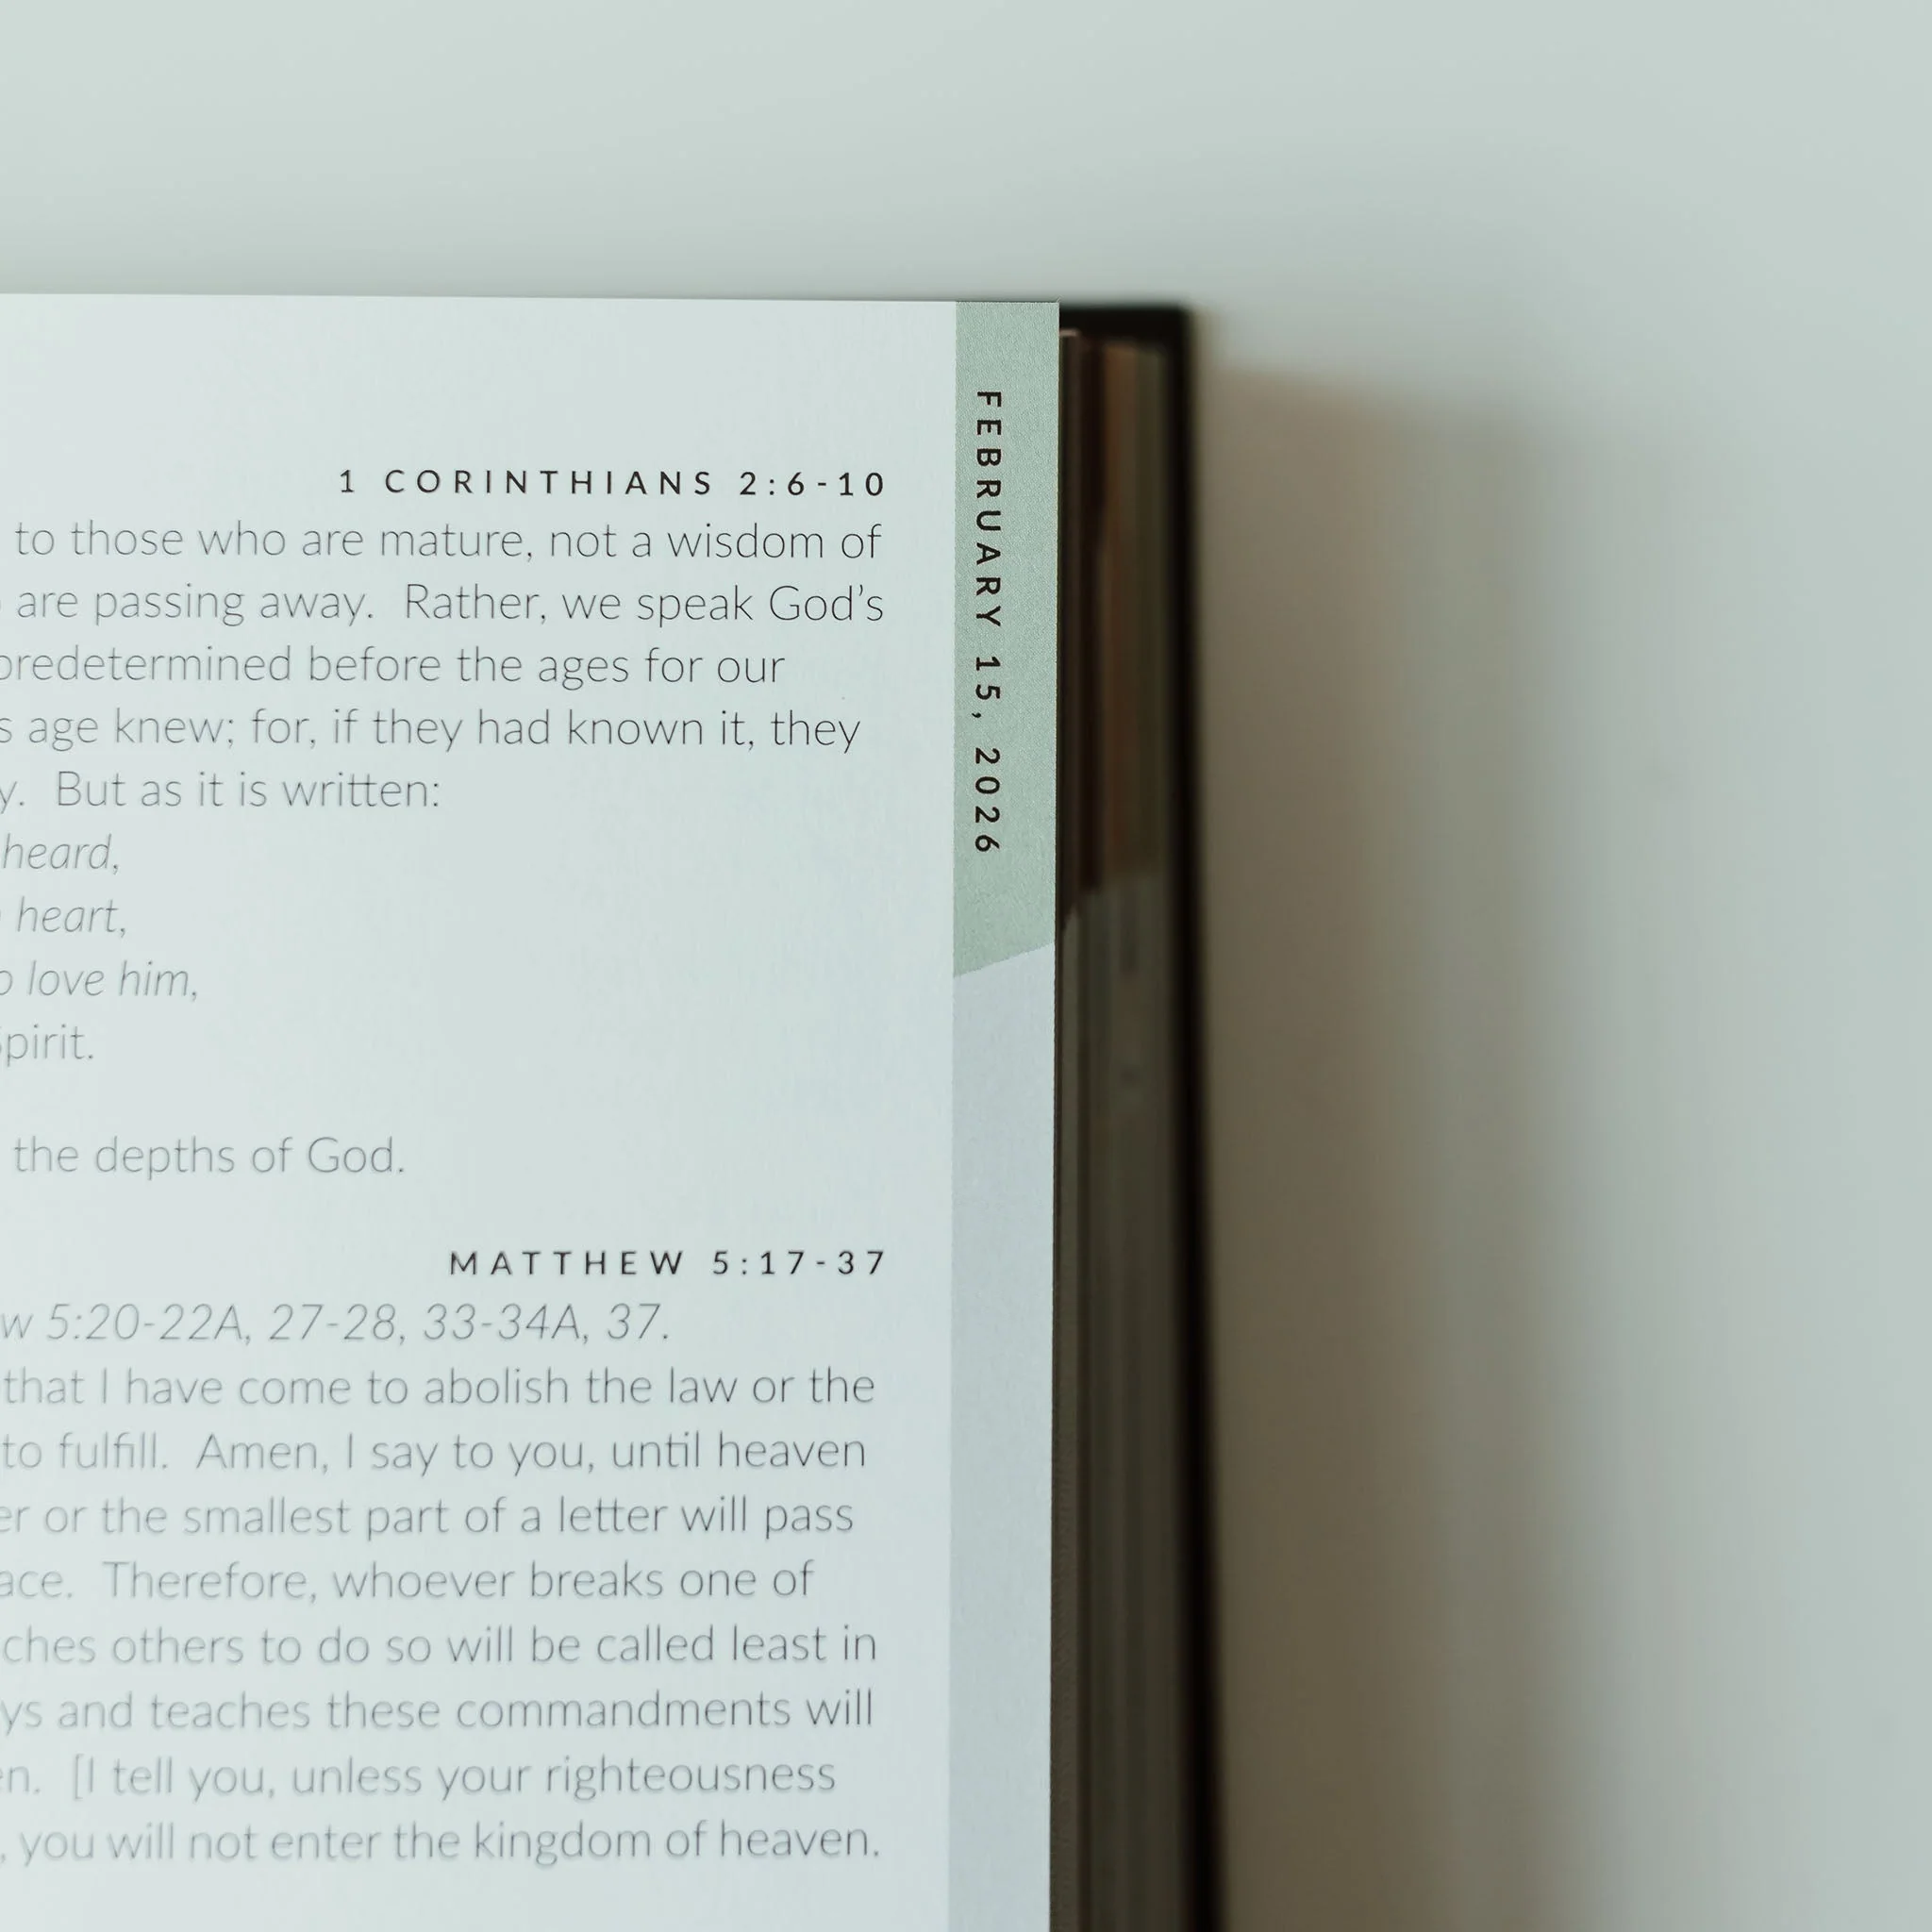 1 CORINTHIANS 2:6-10
to those who are mature, not a wisdom of
are passing away. Rather, we speak God's
predetermined before the ages for our
age knew; for, if they had known it, they
But as it is written:
heard,
heart,
love him,
Spirit.
the depths of God.
MATTHEW 5:17-37
5:20-22A, 27-28, 33-34A, 37.
that I have come to abolish the law or the
to fulfill. Amen, I say to you, until heaven
or the smallest part of a letter will pass
Therefore, whoever breaks one of
others to do so will be called least in
and teaches these commandments will
[I tell you, unless your righteousness
you will not enter the kingdom of heaven.
FEBRUARY 15, 2026